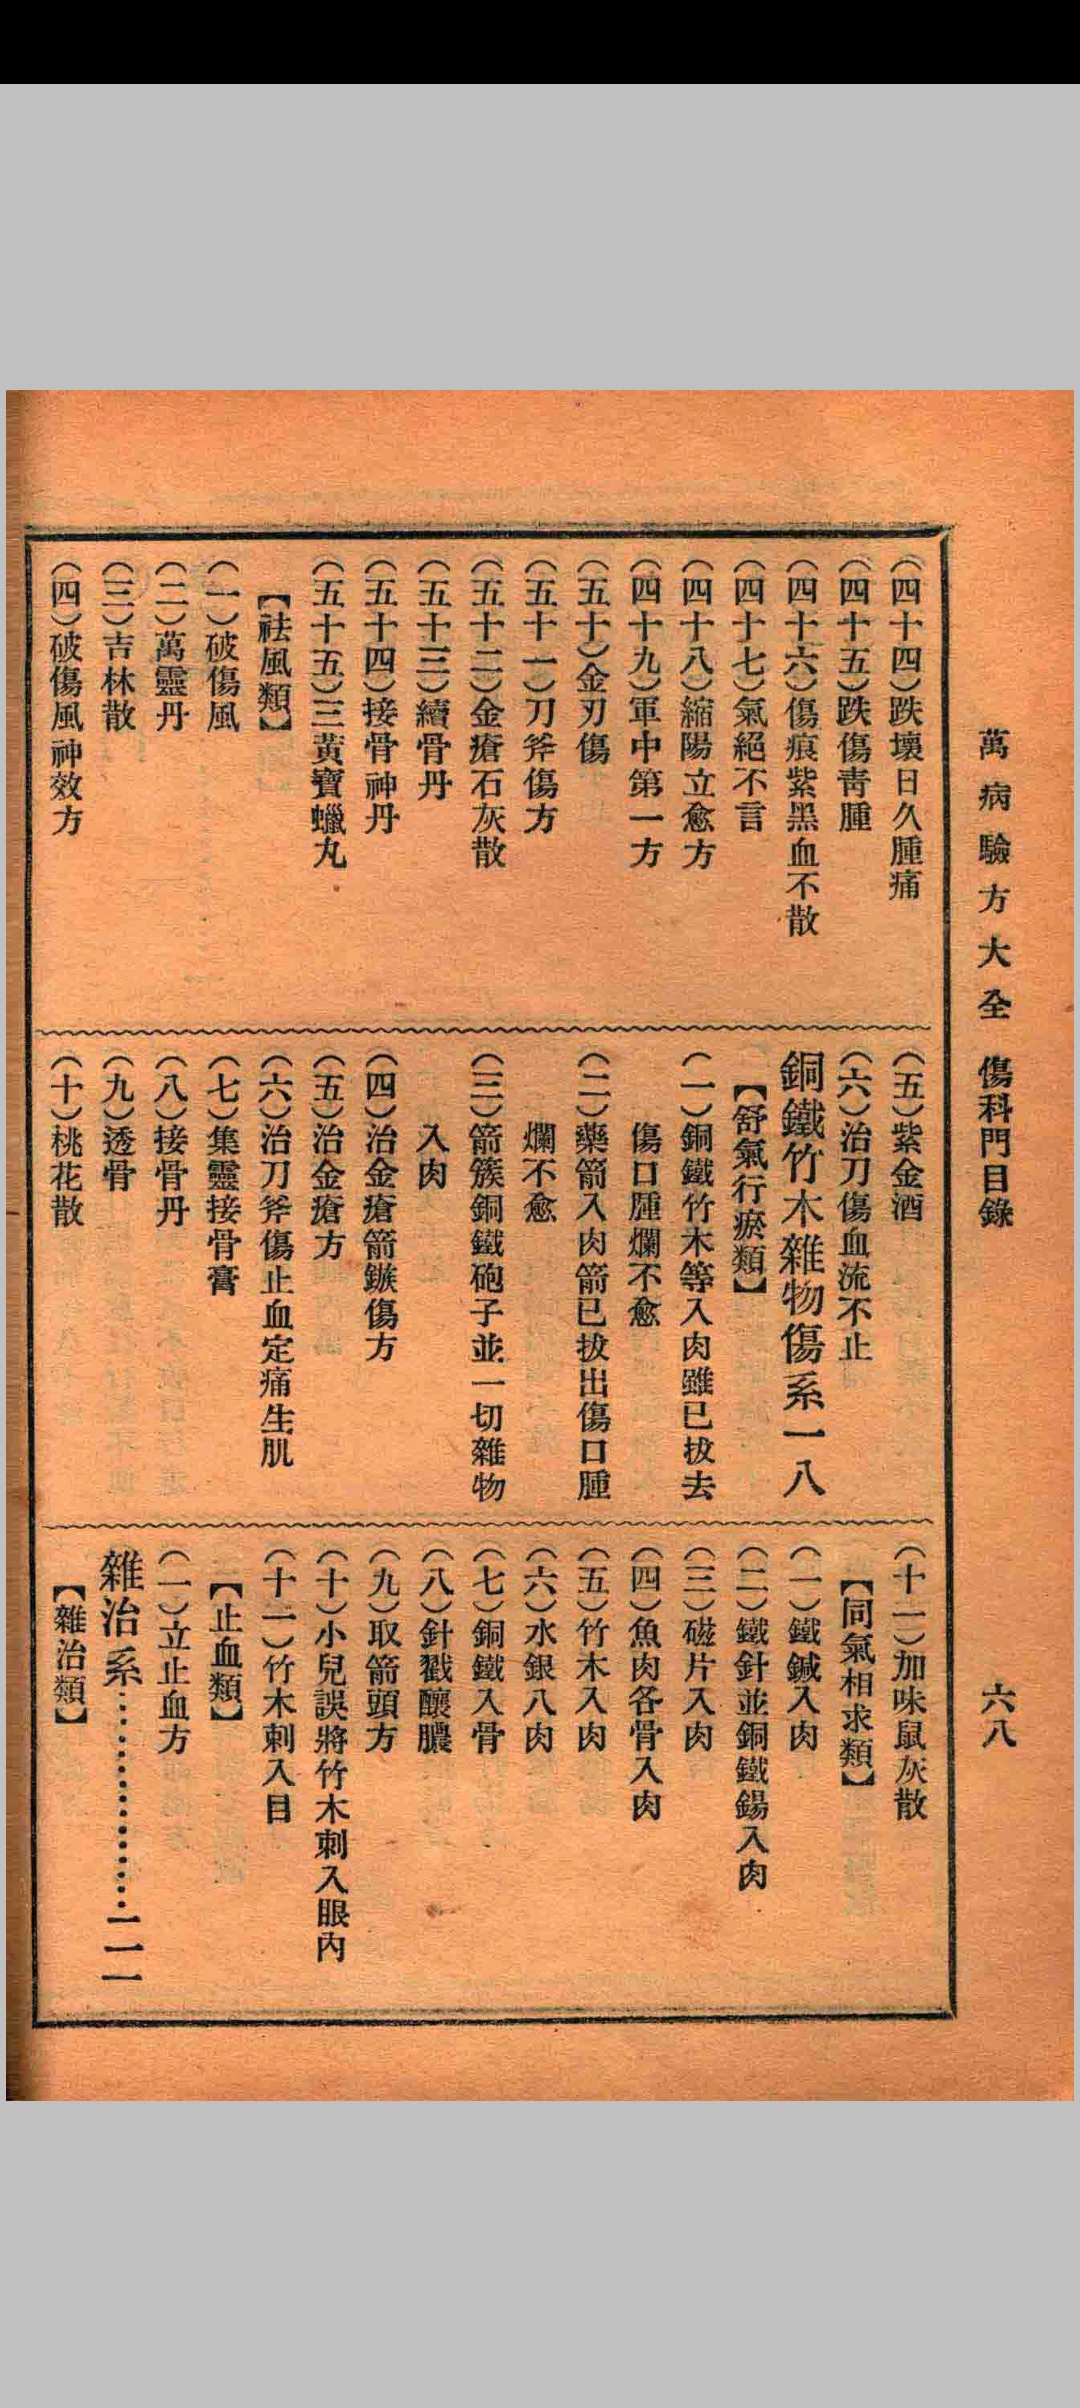 萬病驗方大全　傷科門目錄　六八
（四十四）跌壞日久腫痛
（四十五）跌傷靑腫
（四十六）傷痕紫黑血不散
（四十七）氣絕不言
（四十八）縮陽立愈方
（四十九）軍中第一方
（五十）金刃傷
（五十一）刀斧傷方
（五十二）金瘡石灰散
（五十三）續骨丹
（五十四）接骨神丹
（五十五）三黃寶蠟丸
【祛風類】
（一）破傷風
（二）萬靈丹
（三）吉林散
（四）破傷風神效方
（五）紫金酒
（六）治刀傷血流不止
銅鐵竹木雜物傷系一八
【舒氣行瘀類】
（一）銅鐵竹木等入肉雖已拔去
傷口腫爛不愈
（二）藥箭入肉箭已拔出傷口腫
爛不愈
（三）箭簇銅鐵砲子並一切雜物
入肉
（四）治金瘡箭鏃傷方
（五）治金瘡方
（六）治刀斧傷止血定痛生肌
（七）集靈接骨膏
（八）接骨丹
（九）透骨
（十）桃花散
（十一）加味鼠灰散
【同氣相求類】
（一）鐵鍼入肉
（二）鐵針並銅鐵錫入肉
（三）磁片入肉
（四）魚肉各骨入肉
（五）竹木入肉
（六）水銀入肉
（七）銅鐵入骨
（八）針戳釀膿
（九）取箭頭方
（十）小兒誤將竹木刺入眼內
（十一）竹木刺入目
【止血類】
（一）立止血方
雜治系…………二一一
【雜治類】